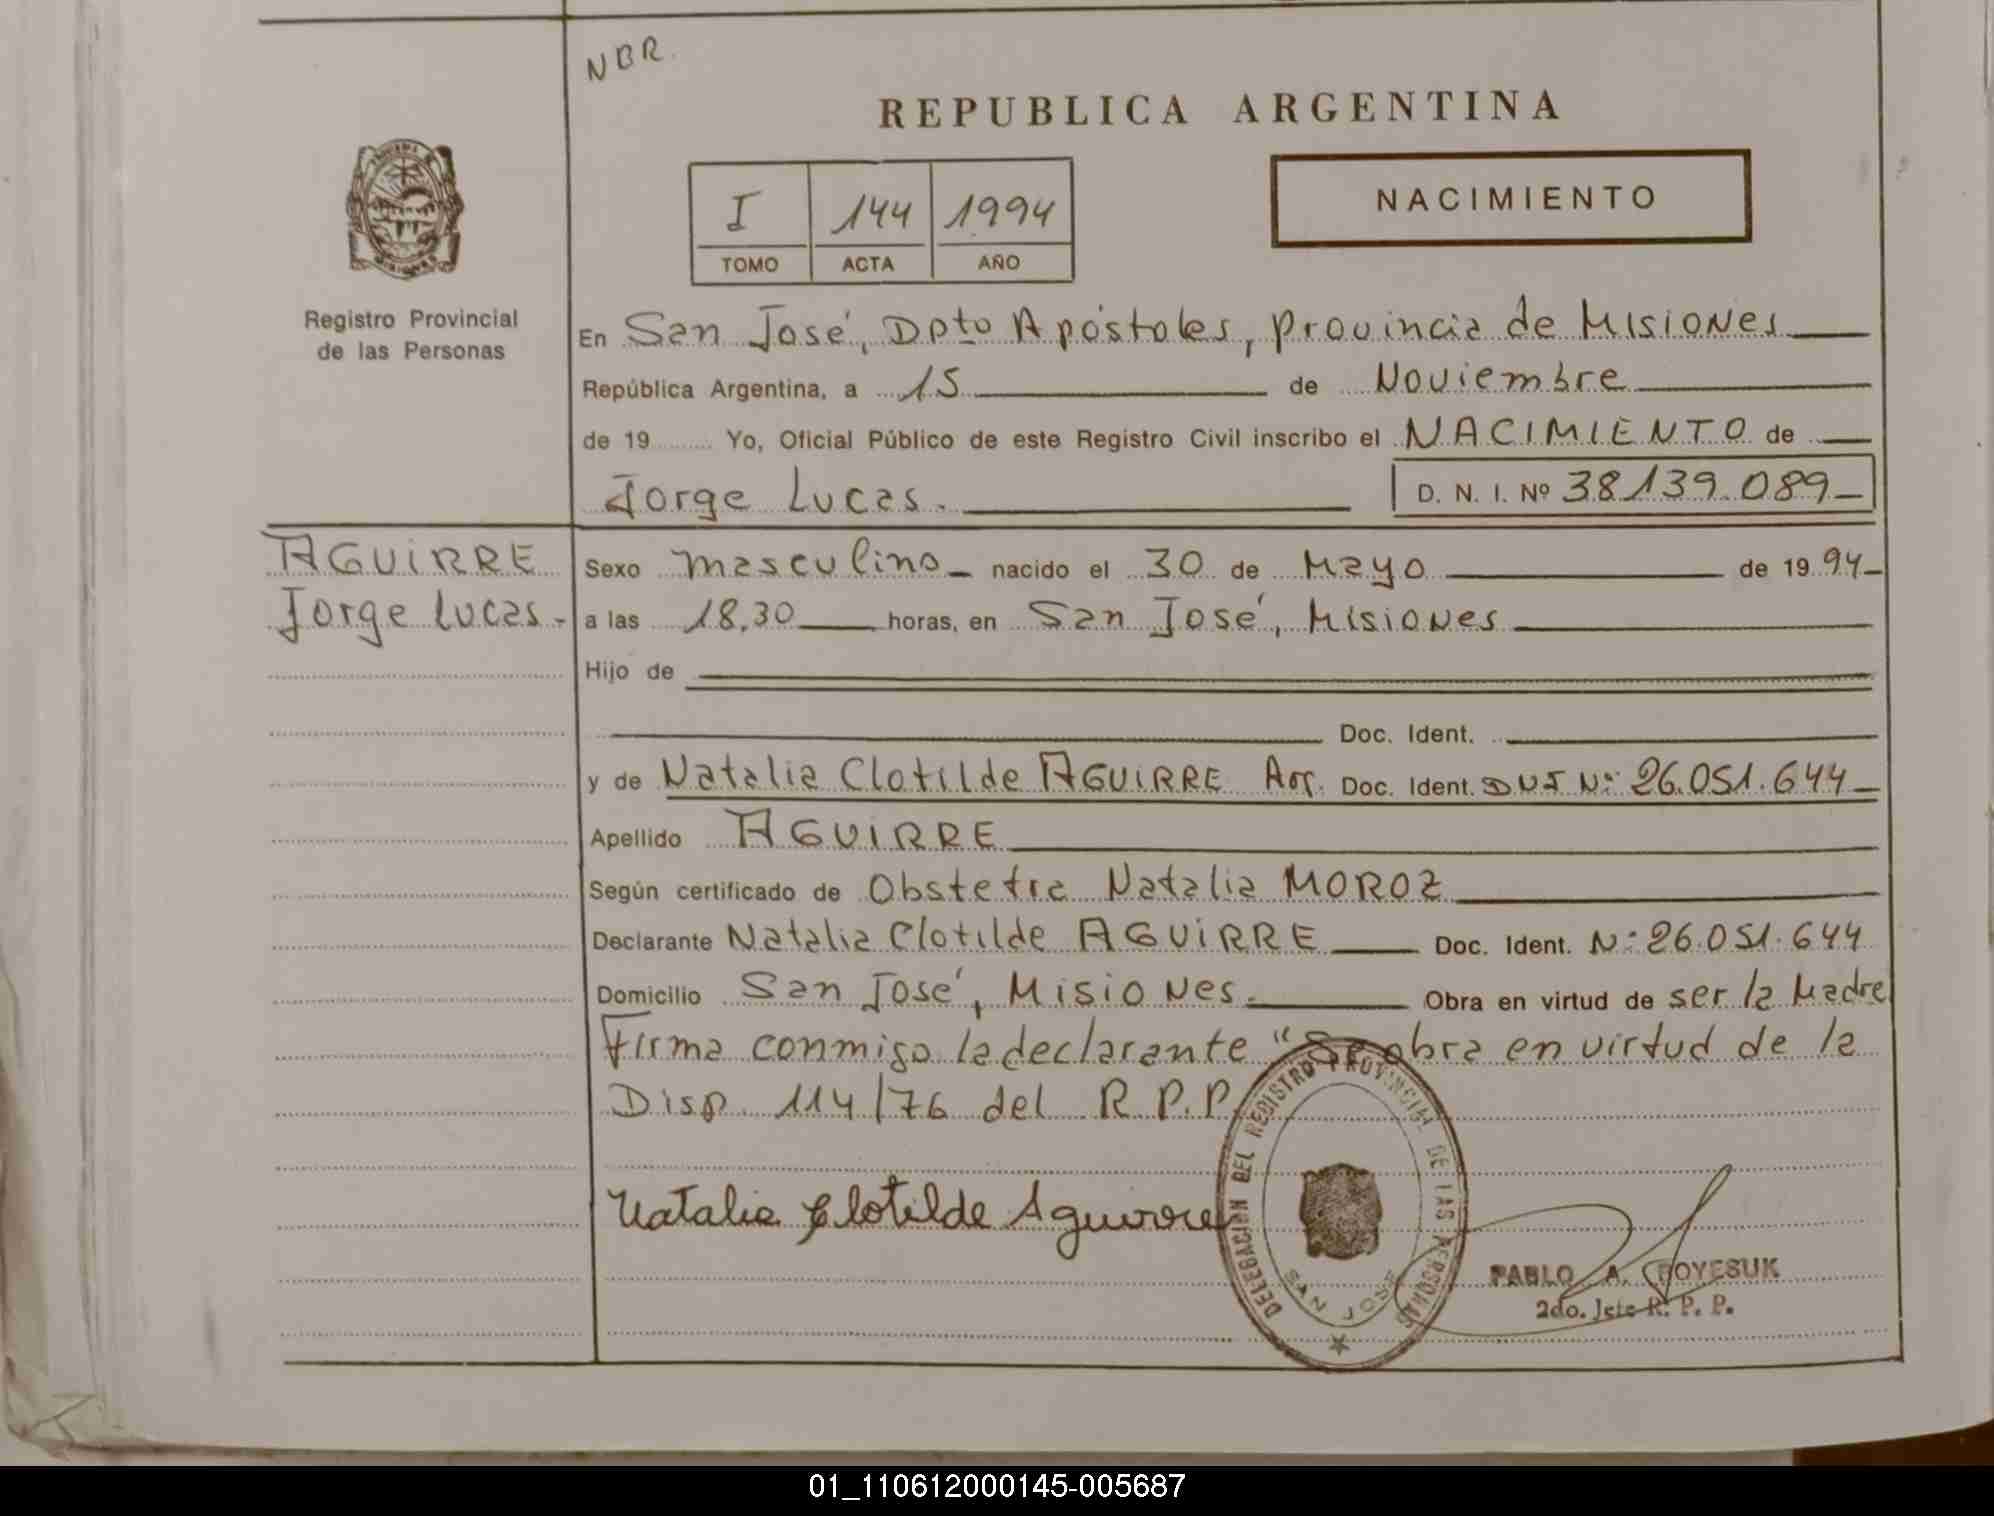 NBR.
REPUBLICA ARGENTINA
I 144 1994
TOMO ACTA AÑO
NACIMIENTO
Registro Provincial
de las Personas
En San José, Dpto Apóstoles, Provincia de Misiones
República Argentina, a 15 de Noviembre
de 19 Yo, Oficial Público de este Registro Civil inscribo el NACIMIENTO de
Jorge Lucas. D. N. I. Nº 38139.089
AGUIRRE
Jorge Lucas.-
Sexo masculino nacido el 30 de Mayo de 1994
a las 18,30 horas, en San José, Misiones
Hijo de
Doc. Ident.
y de Natalia Clotilde AGUIRRE Arg. Doc. Ident. DNI Nº 26.051.644
Apellido AGUIRRE
Según certificado de Obstetra Natalia MOROZ
Declarante Natalia Clotilde AGUIRRE Doc. Ident. Nº 26.051.644
Domicilio San José, Misiones. Obra en virtud de ser la Madre
Firma conmigo la declarante "Se obra en virtud de la
Disp. 114/76 del R.P.P.
Natalia Clotilde Aguirre
DELEGACION DEL REGISTRO PROVINCIAL DE LAS PERSONAS
SAN JOSE
PABLO A. BOYESUK
2do. Jefe R. P. P.
01_110612000145-005687